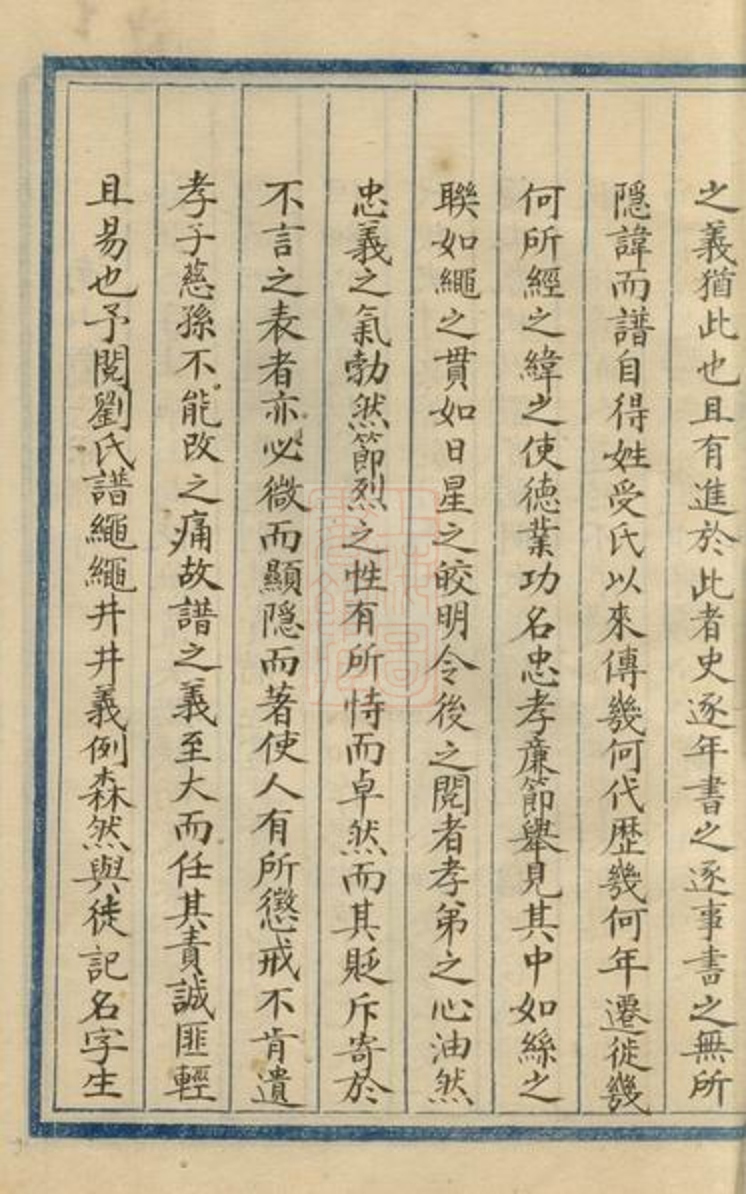 之義猶此也且有進於此者史逐年書之逐事書之無所
隱諱而譜自得姓受氏以來傳幾何代歷幾何年遷徙幾
何所經之緯之使德業功名忠孝廉節舉見其中如絲之
聯如繩之貫如日星之皎明令後之閱者孝弟之心油然
忠義之氣勃然節烈之性有所恃而卓然而其貶斥寄於
不言之表者亦必微而顯隱而著使人有所懲戒不肯遺
孝子慈孫不能改之痛故譜之義至大而任其責誠匪輕
且易也予閱劉氏譜繩繩井井義例森然與徒記名字生